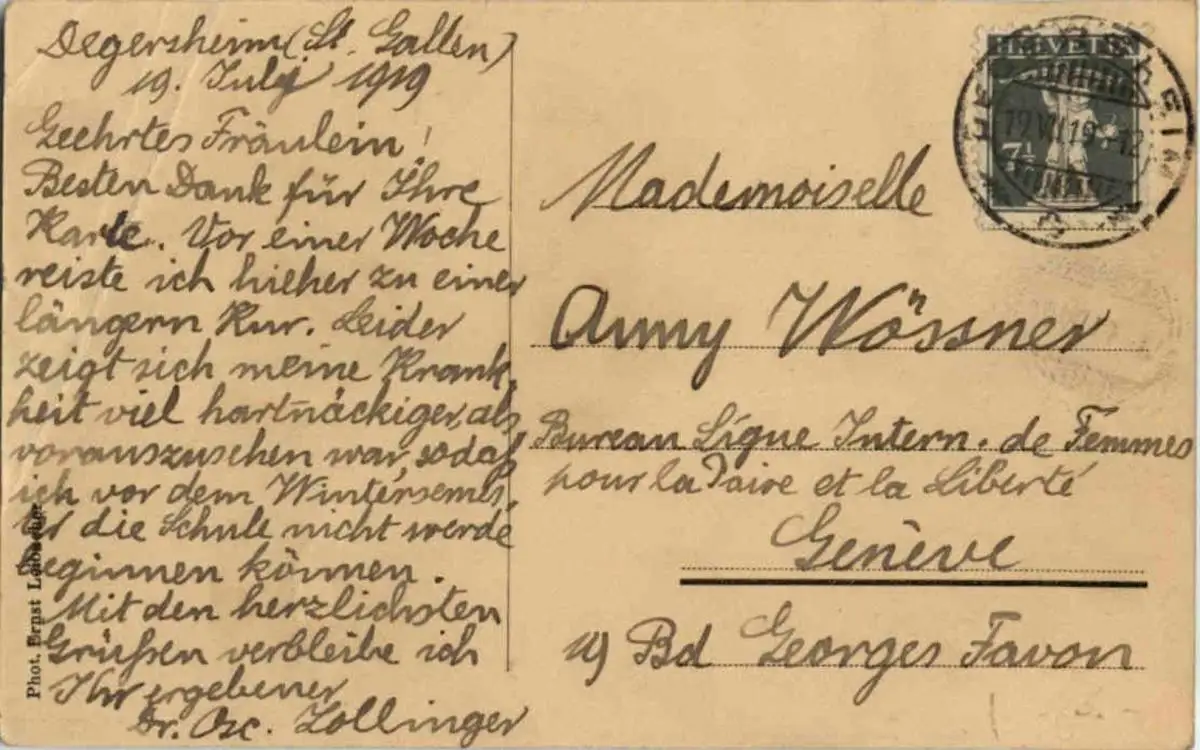 Degersheim (St. Gallen)
19. July 1919
Geehrtes Fräulein!
Besten Dank für Ihre
Karte. Vor einer Woche
reiste ich hieher zu einer
längern Kur. Leider
zeigt sich meine Krank-
heit viel hartnäckiger, als
vorauszusehen war, sodaß
ich vor dem Wintersemes-
ter die Schule nicht werde
beginnen können.
Mit den herzlichsten
Grüßen verbleibe ich
Ihr ergebener
Dr. Osc. Zollinger
Phot. Ernst
HELVETIA
7½
DEGERSHEIM
19.VII.19.-12
Mademoiselle
Anny Wössner
Bureau Ligue Intern. de Femmes
pour la Paix et la Liberté
Genève
19 Bd Georges Favon